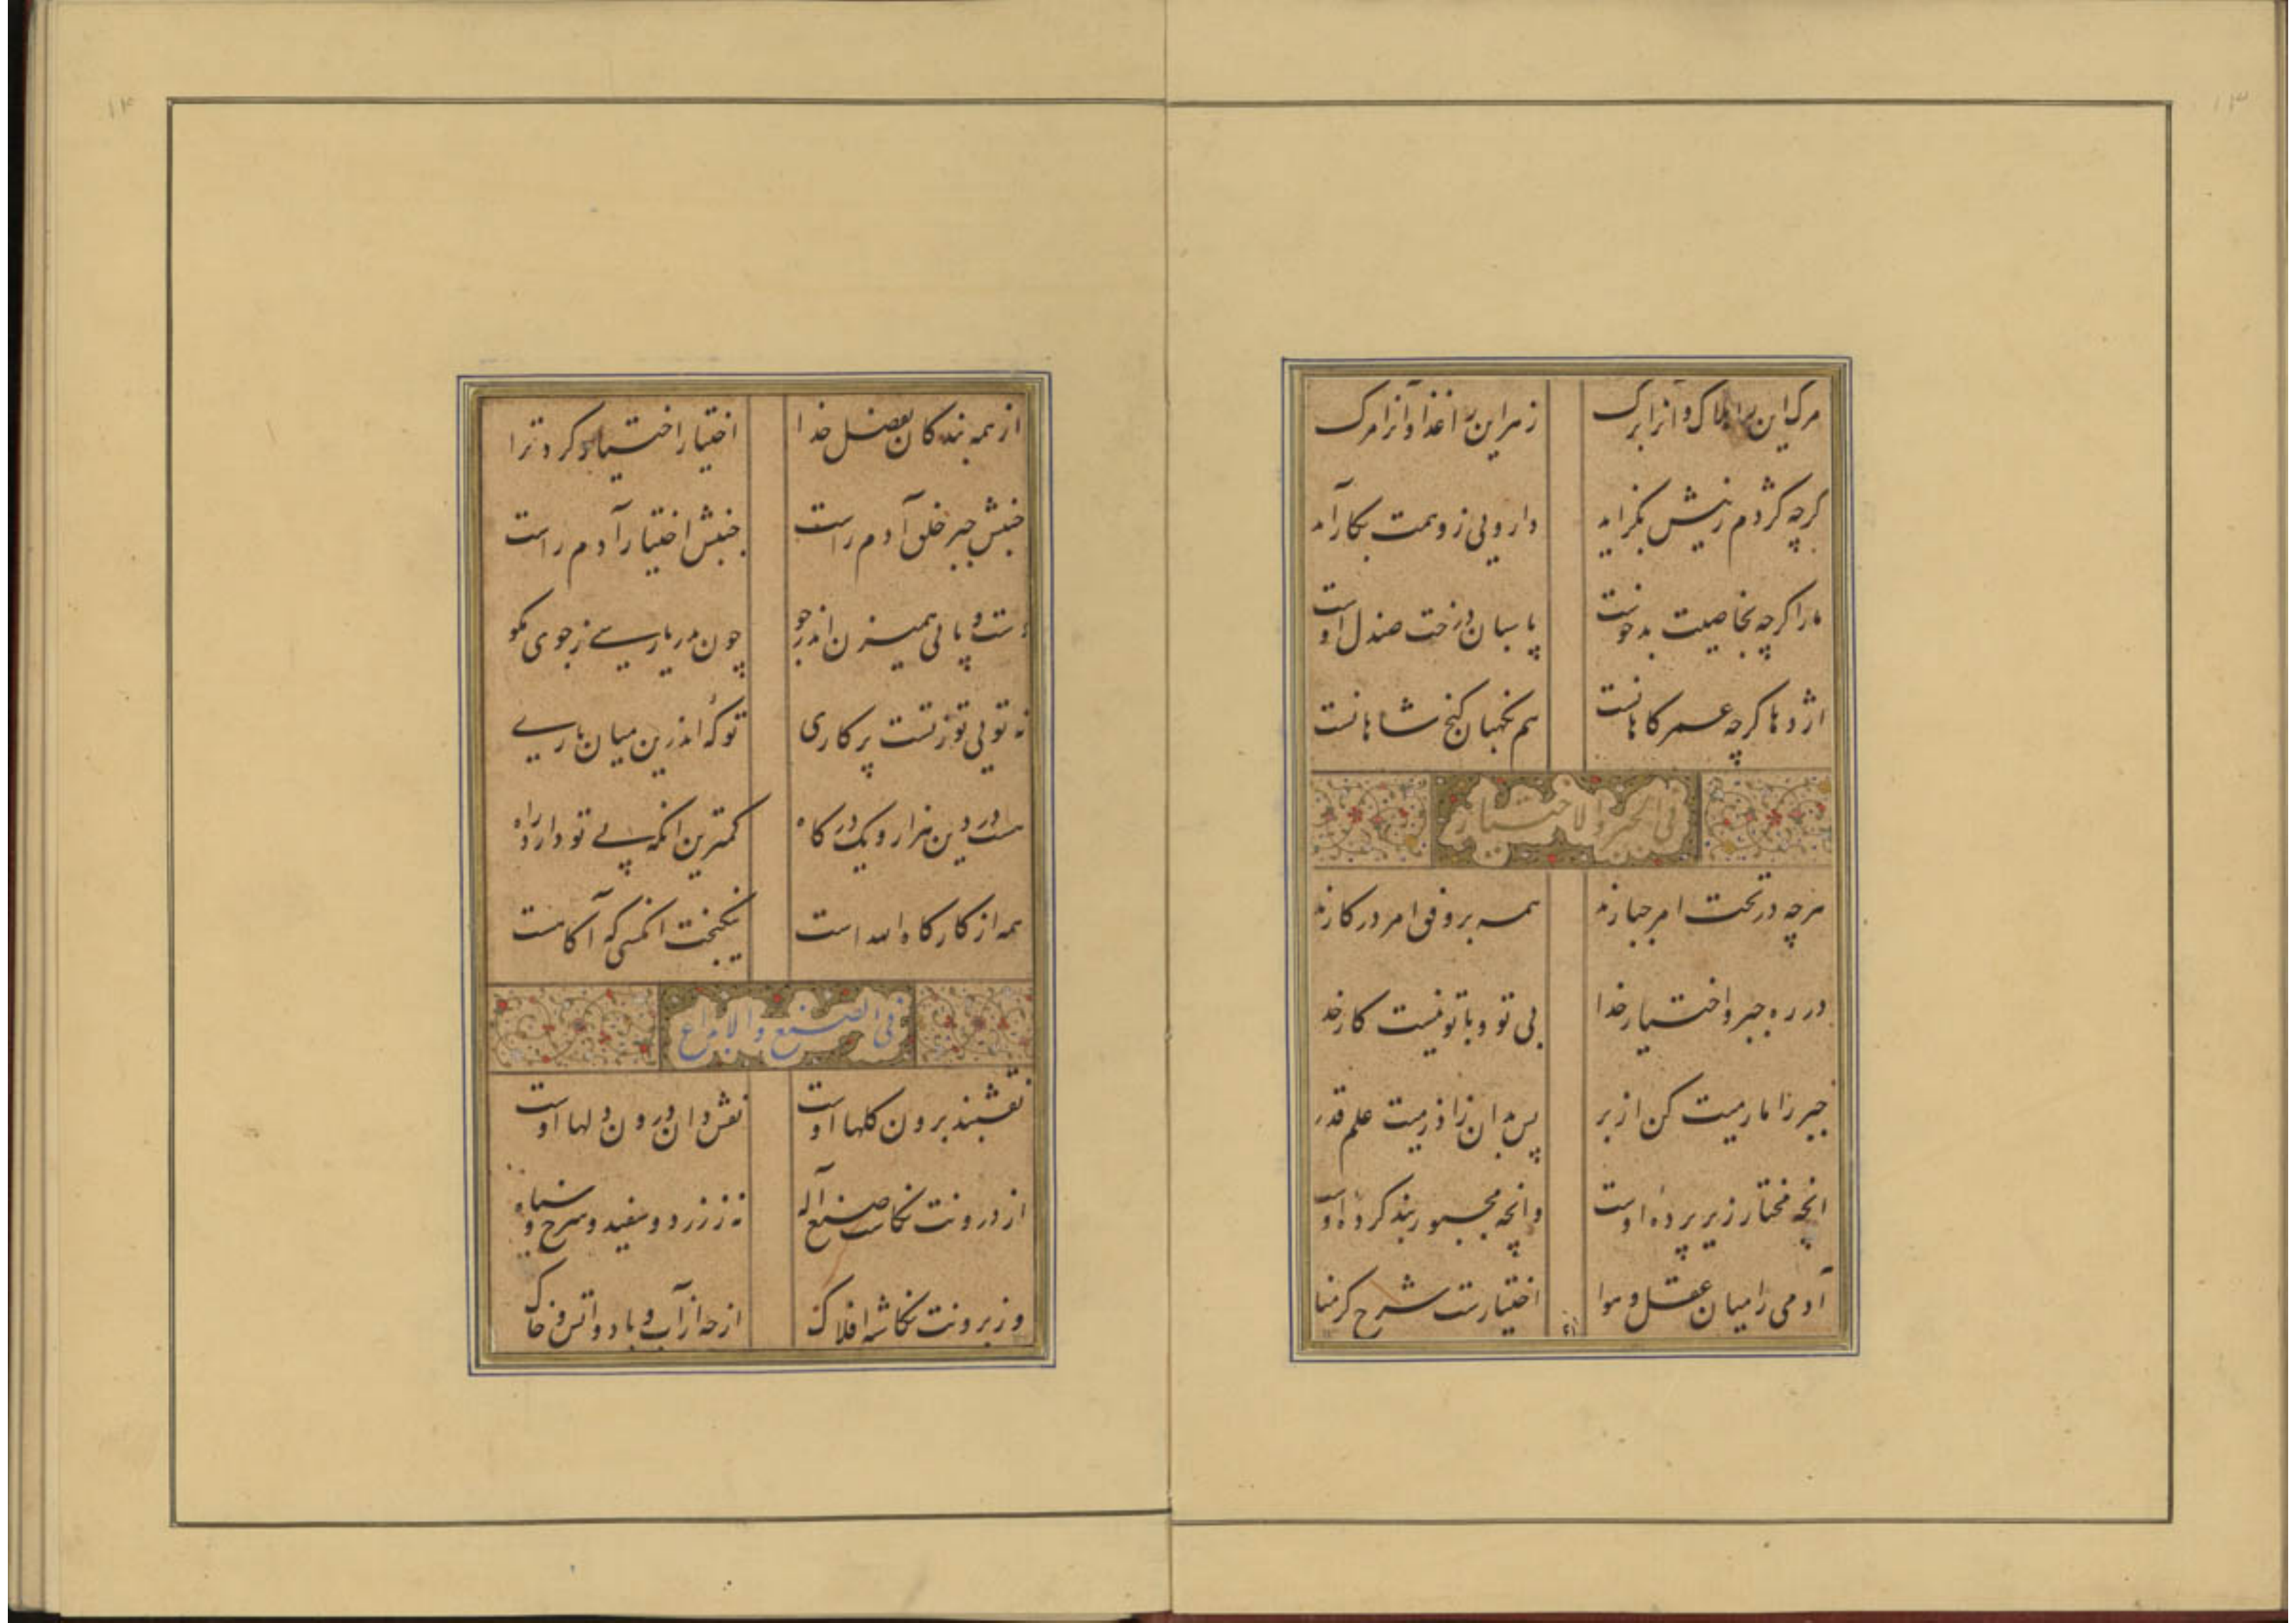 ۱۳
مرک این را هلاک و انرا برک زهر این را غذا و انرا مرک
کرچه کژدم زنیش بکزاید دارویی زو همت بکار آمد
مار اکرچه بخاصیت بدخوست پاسبان درخت صندل اوست
اژدها کرچه عمر کاهانست هم نکهبان کنج شاهانست
فی الجبر والاختیار
هرچه در تحت امر جبارند همه بر وفق امر در کارند
در ره جبر و اختیار خدا بی تو و با تو نیست کار خدا
جبر را مارمیت کن از بر پس بدان زاذرمیت علم قدر
انچه مختار زیر پرده اوست وانچه مجبور بند کرده اوست
آدمی را میان عقل و هوا اختیارست شرح کرمنا
۱۴
از همه بندکان بفضل خدا اختیار اختیار کرد ترا
جنبش جبر خلق آدم راست جنبش اختیار آدم راست
دست و پایی همیزن اندر جو چون بدریا رسی ز جوی مکو
نه تویی تو ز تست پرکاری تو کهٔ اندرین میان باری
هست در دین هزار و یک درکاه کمترین انکه بی تو دارد راه
همه از کارکاه الله است نیکبخت انکسی که آکاهست
فی الصنع والابداع
نقشبند برون کلها اوست نقش دان درون دلها اوست
از درونت نکاشت صنع آله نه ز زرد و سفید و سرخ و سیاه
وز برونت نکاشته افلاک از چه از آب و باد و اتش و خاک